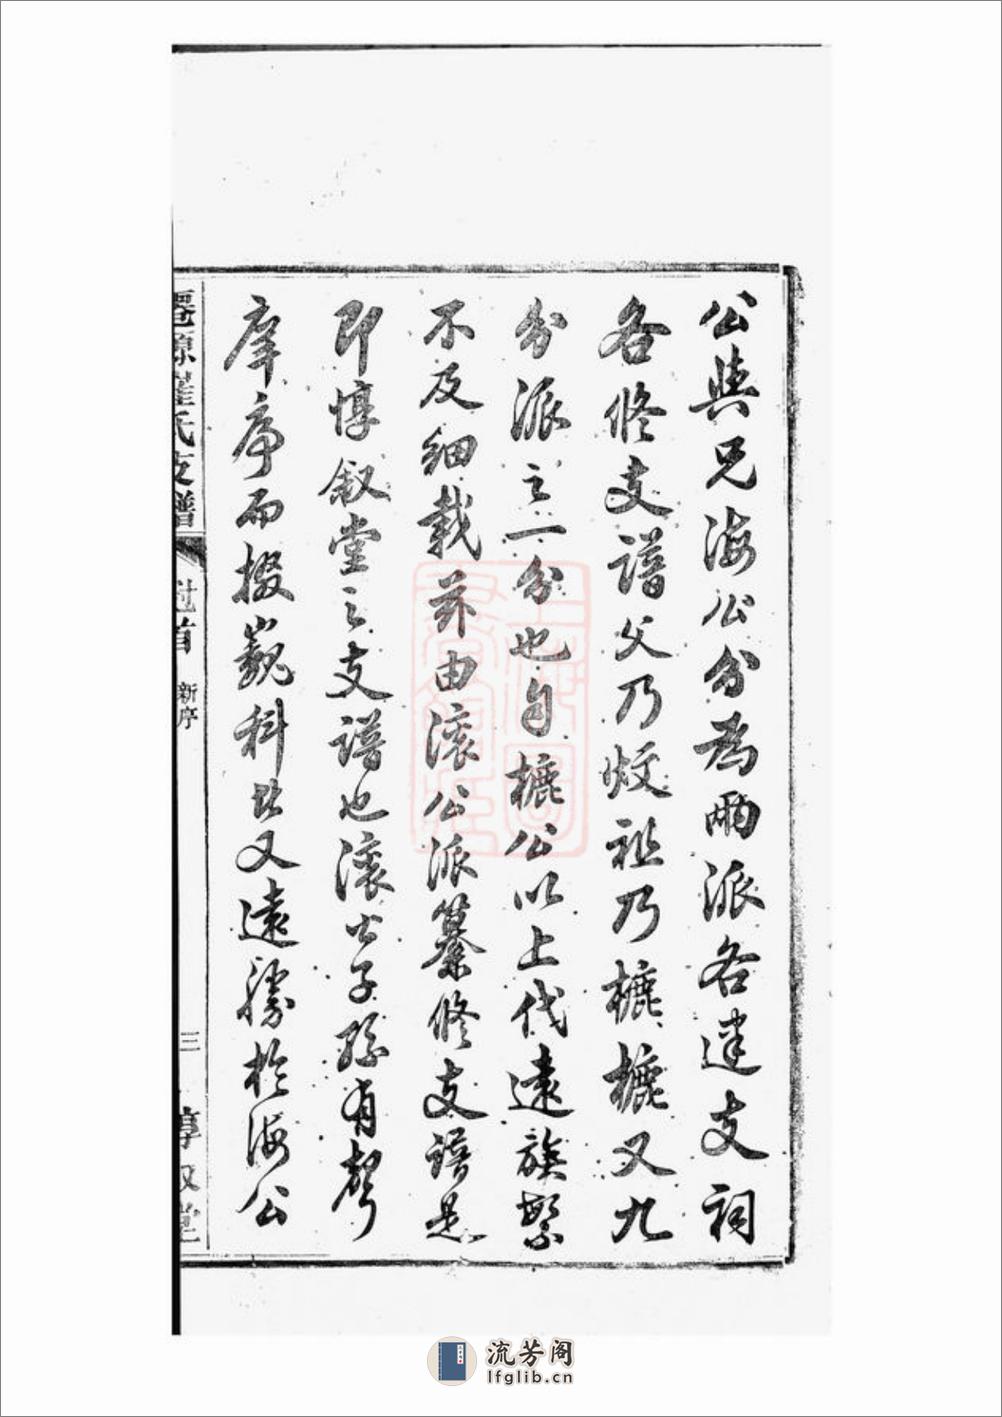 公與兄海公分為兩派各建支祠
各修支譜父乃炆祖乃櫎櫎又九
分派之一分也自櫎公以上代遠族繁
不及細載茲由滚公派纂修支譜是
即惇敘堂之支譜也滚公子孫有聲
庠序而掇巍科者又遠勝於海公
崔氏支譜
首
新序
三
惇叙堂
上海圖書館藏
流芳阁
lfglib.cn